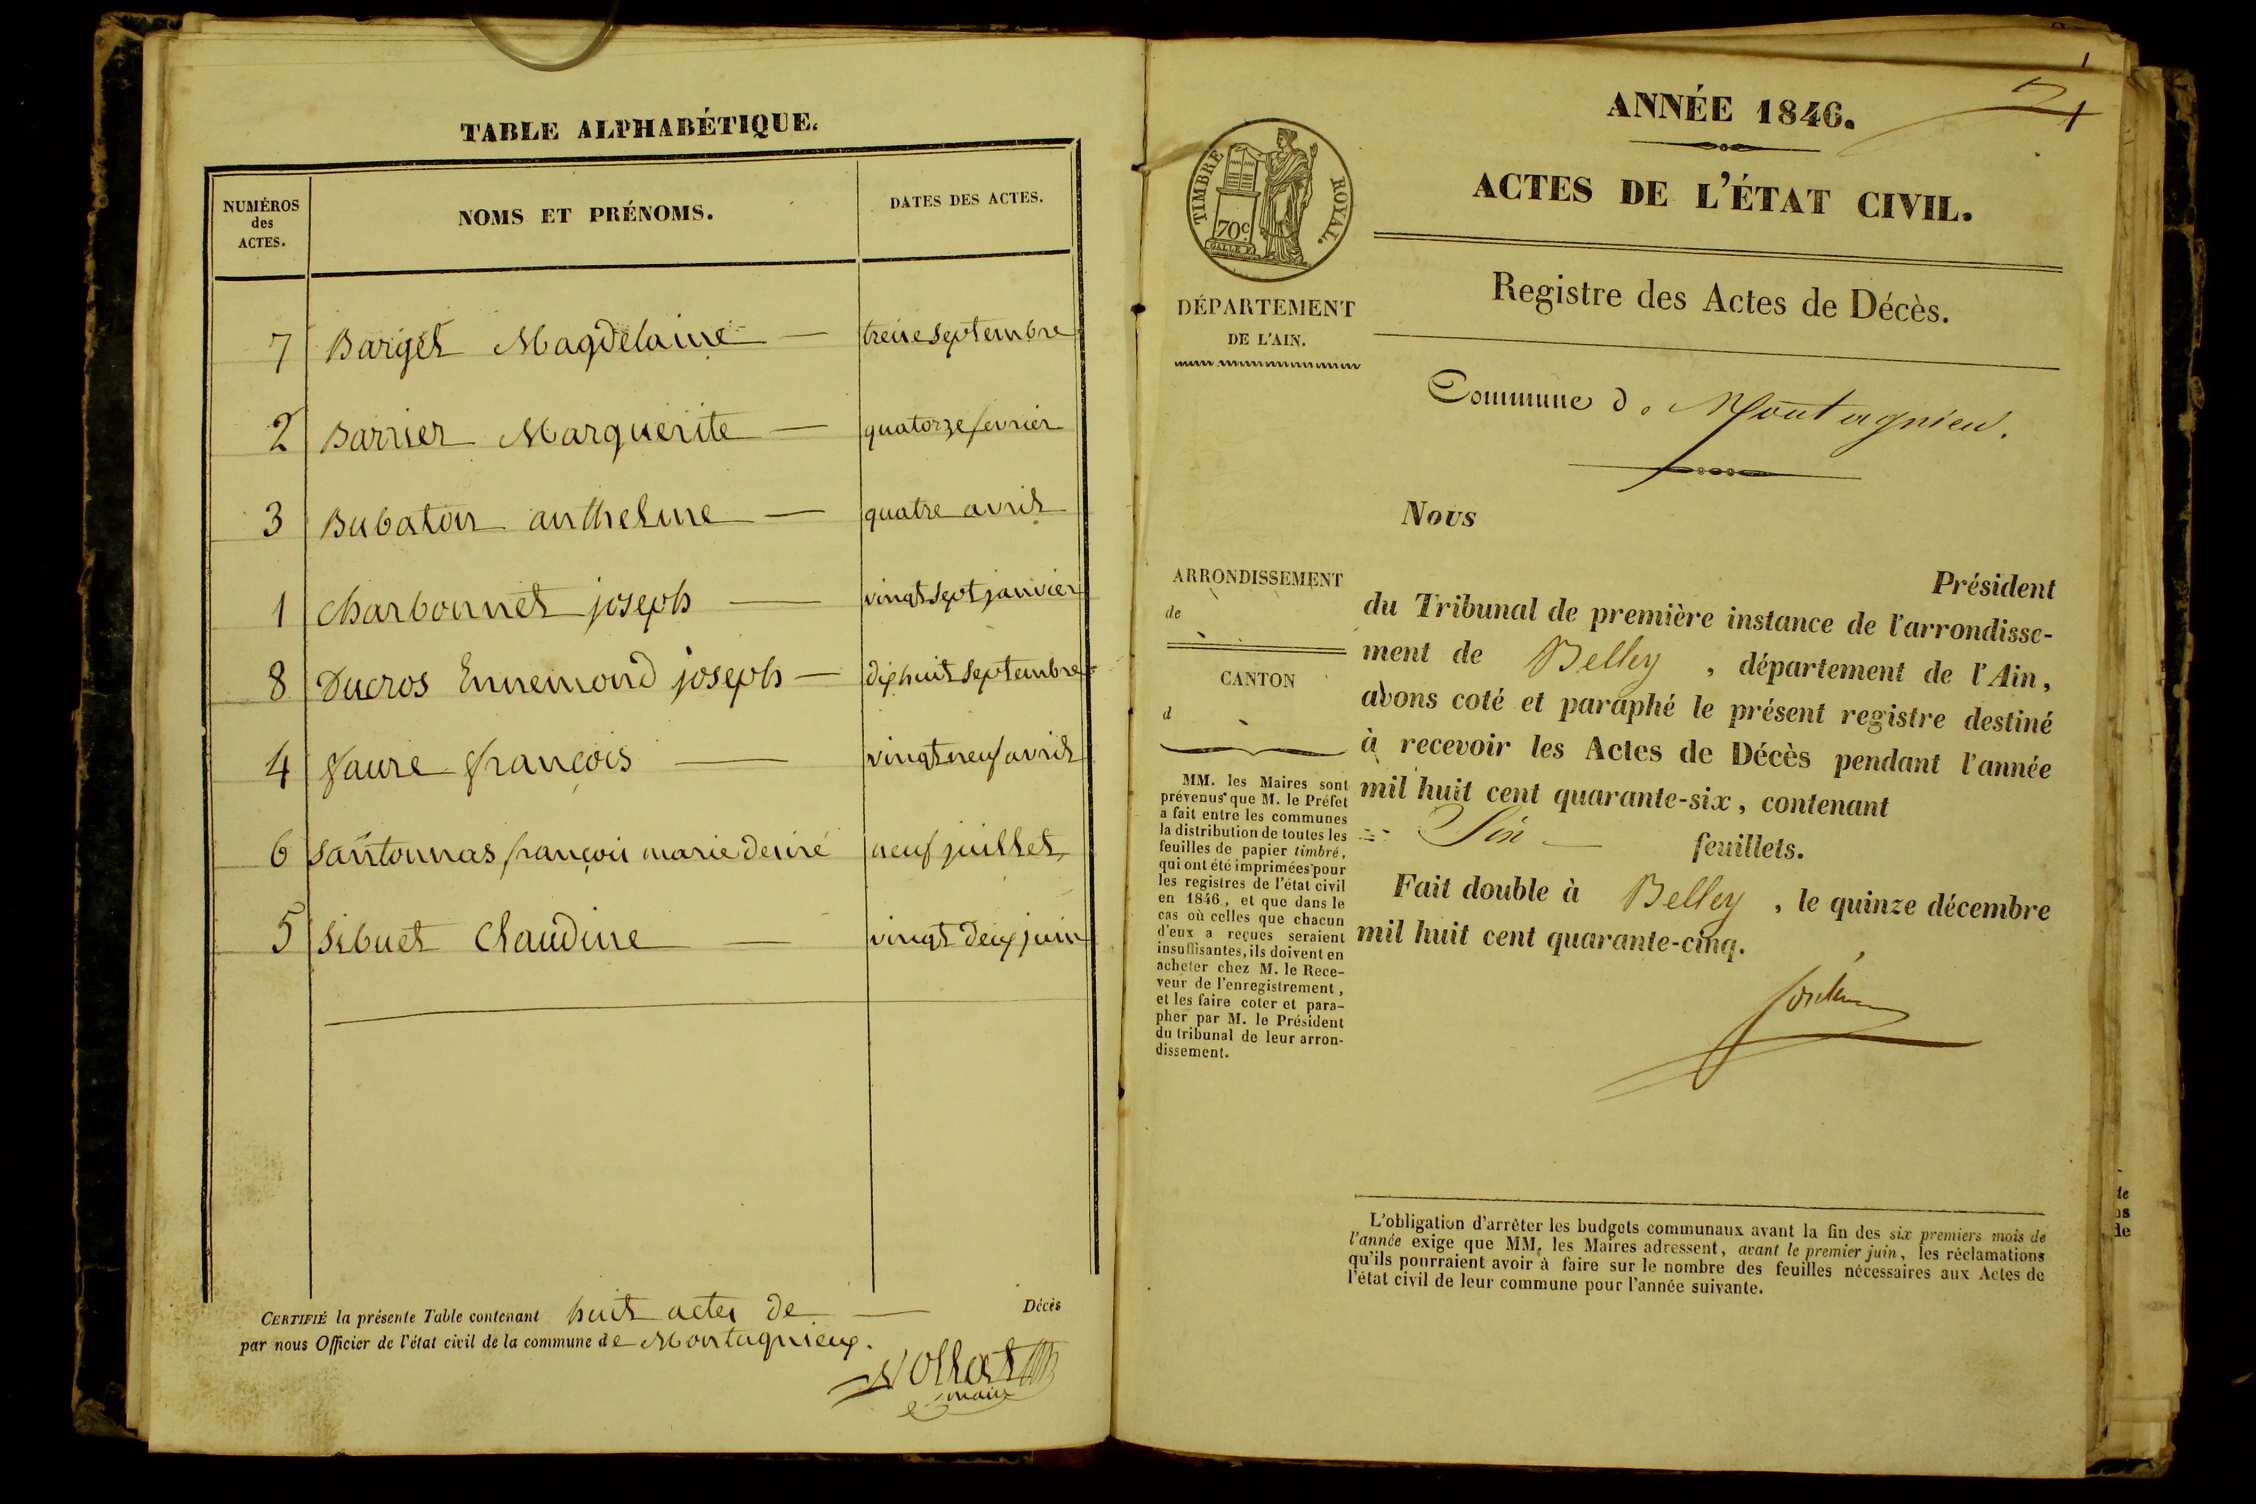 TABLE ALPHABÉTIQUE.
NUMÉROS
des
ACTES.
NOMS ET PRÉNOMS.
DATES DES ACTES.
7 Barget Magdelaine — treize septembre
2 Barrier Marguerite — quatorze fevrier
3 Bubaton anthelme — quatre avril
1 Charbonnet joseph — vingt sept janvier
8 Ducros Ennemond joseph — dix huit septembre
4 faure françois — vingt neuf avril
6 Santonnas françois marie desiré neuf juillet
5 Sibuet Claudine — vingt deux juin
CERTIFIÉ la présente Table contenant huit actes de — Décès
par nous Officier de l'état civil de la commune de Montagnieux.
maire
ANNÉE 1846.
ACTES DE L'ÉTAT CIVIL.
TIMBRE ROYAL.
70c
Registre des Actes de Décès.
DÉPARTEMENT
DE L'AIN.
Commune d. Montagnieu.
Nous
Président
du Tribunal de première instance de l'arrondisse-
ment de Belley, département de l'Ain,
avons coté et paraphé le présent registre destiné
à recevoir les Actes de Décès pendant l'année
mil huit cent quarante-six, contenant
Six — feuillets.
Fait double à Belley, le quinze décembre
mil huit cent quarante-cinq.
ARRONDISSEMENT
de
CANTON
d
MM. les Maires sont
prévenus que M. le Préfet
a fait entre les communes
la distribution de toutes les
feuilles de papier timbré,
qui ont été imprimées pour
les registres de l'état civil
en 1846, et que dans le
cas où celles que chacun
d'eux a reçues seraient
insuffisantes, ils doivent en
acheter chez M. le Rece-
veur de l'enregistrement,
et les faire coter et para-
pher par M. le Président
du tribunal de leur arron-
dissement.
L'obligation d'arrêter les budgets communaux avant la fin des six premiers mois de
l'année exige que MM. les Maires adressent, avant le premier juin, les réclamations
qu'ils pourraient avoir à faire sur le nombre des feuilles nécessaires aux Actes de
l'état civil de leur commune pour l'année suivante.